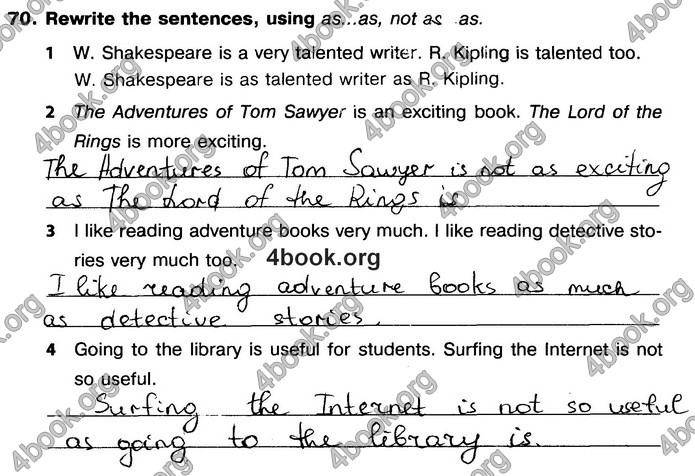 70. Rewrite the sentences, using as...as, not as as.
1 W. Shakespeare is a very talented writer. R. Kipling is talented too.
W. Shakespeare is as talented writer as R. Kipling.
2 The Adventures of Tom Sawyer is an exciting book. The Lord of the
Rings is more exciting.
The Adventures of Tom Sawyer is not as exciting
as The Lord of the Rings is
3 I like reading adventure books very much. I like reading detective sto-
ries very much too.
4book.org
I like reading adventure books as much
as detective stories.
4 Going to the library is useful for students. Surfing the Internet is not
so useful.
Surfing the Internet is not so useful
as going to the library is.